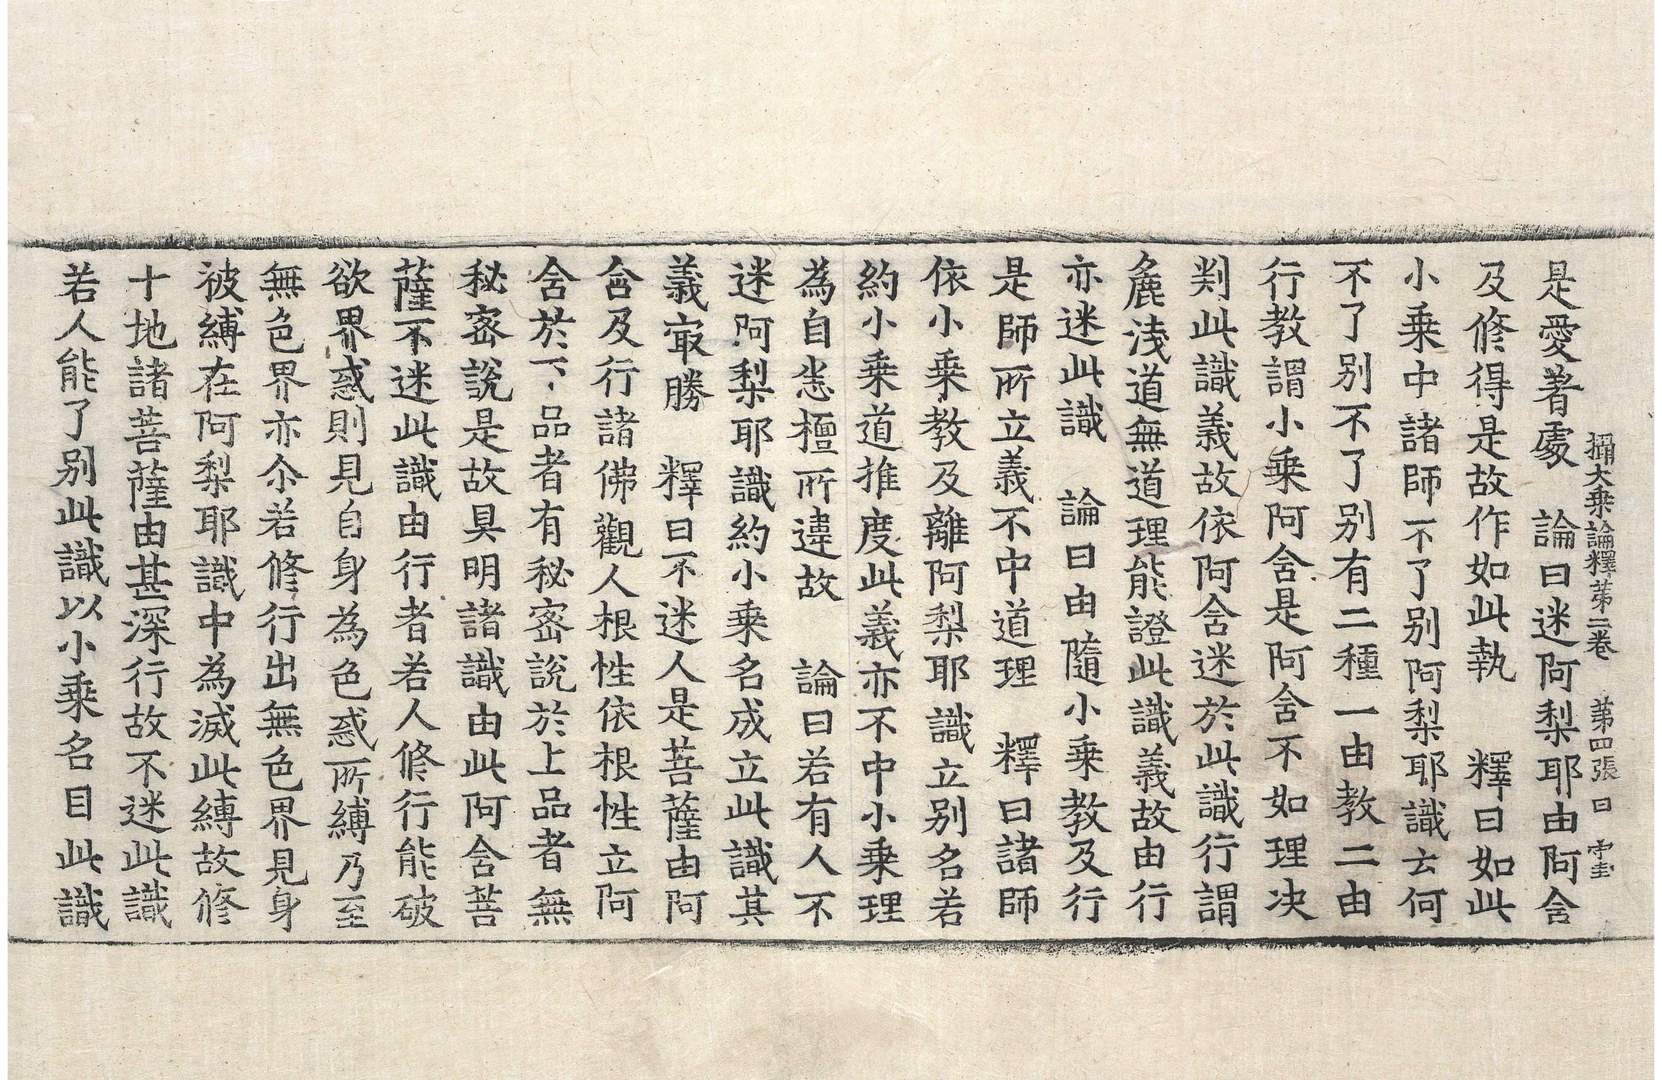 攝大乘論釋第二卷　第四張　曰
是愛著處　論曰迷阿梨耶由阿含
及修得是故作如此執　釋曰如此
小乘中諸師不了別阿梨耶識云何
不了別不了別有二種一由教二由
行教謂小乘阿含是阿含不如理决
判此識義故依阿含迷於此識行謂
麁淺道無道理能證此識義故由行
亦迷此識　論曰由隨小乘教及行
是師所立義不中道理　釋曰諸師
依小乘教及離阿梨耶識立別名若
約小乘道推度此義亦不中小乘理
為自悉檀所違故　論曰若有人不
迷阿梨耶識約小乘名成立此識其
義㝡勝　釋曰不迷人是菩薩由阿
含及行諸佛觀人根性依根性立阿
含於下、品者有秘密說於上品者無
秘密說是故具明諸識由此阿含菩
薩不迷此識由行者若人修行能破
欲界惑則見自身為色惑所縛乃至
無色界亦尒若修行出無色界見身
被縛在阿梨耶識中為滅此縛故修
十地諸菩薩由甚深行故不迷此識
若人能了別此識以小乘名目此識